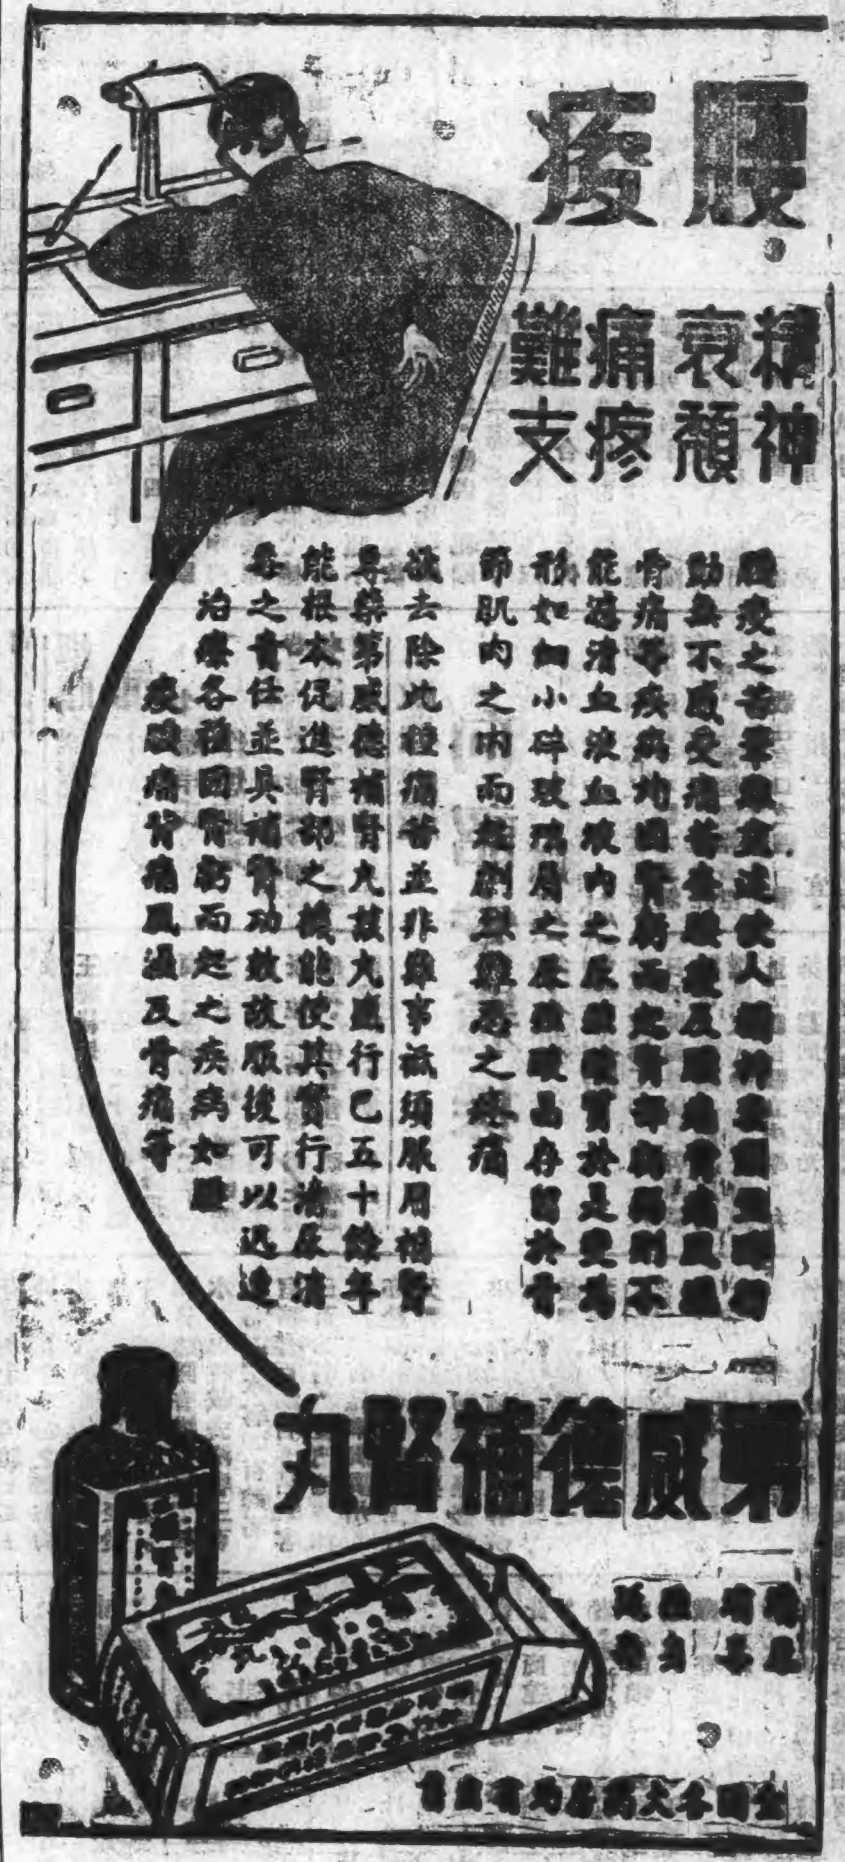 腰痠
精神
衰頹
痛疼
難支
腰痠之苦筆難盡述使人精神衰頹
動無不感受痛苦
骨痛等疾病均因腎虧而起腎部衰弱則不
能濾清血液血液內之尿酸於是變為
形如細小碎玻璃屑之尿酸晶存留於骨
節肌肉之內而起劇烈難忍之疼痛
欲去除此種痛苦並非難事祗須服用補腎
專藥第威德補腎丸該丸盛行已五十餘年
能根本促進腎部之機能使其實行濾尿消
毒之責任並具補腎功效故服後可以迅速
治療各種因腎虧而起之疾病如腰
痠腰痛背痛風濕及骨痛等
第威德補腎丸
全國各大藥房均有出售